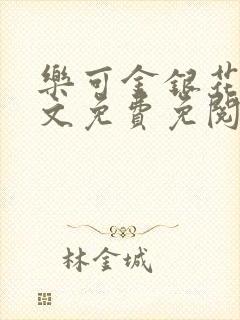 樂可金銀花
文免費免閱
林金城